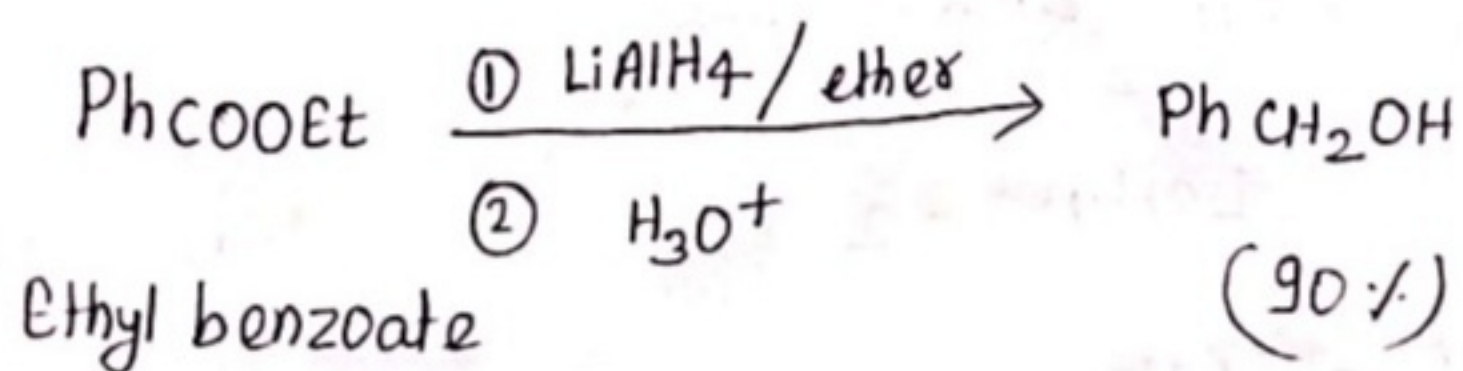 PhCOOEt ① LiAlH4/ether PhCH₂OH
② H₃O+
Ethyl benzoate (90%)